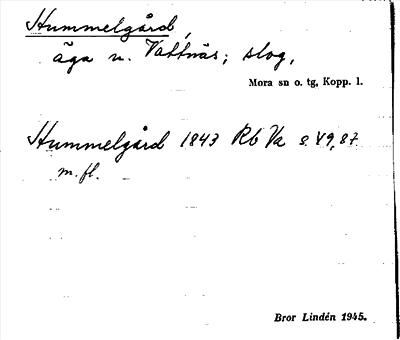 Hummelgård,
äga n. Vattnäs; slog,
Mora sn o. tg, Kopp. l.
Hummelgård 1843 Rb Va s. 49, 87
m. fl.
Bror Lindén 1945.